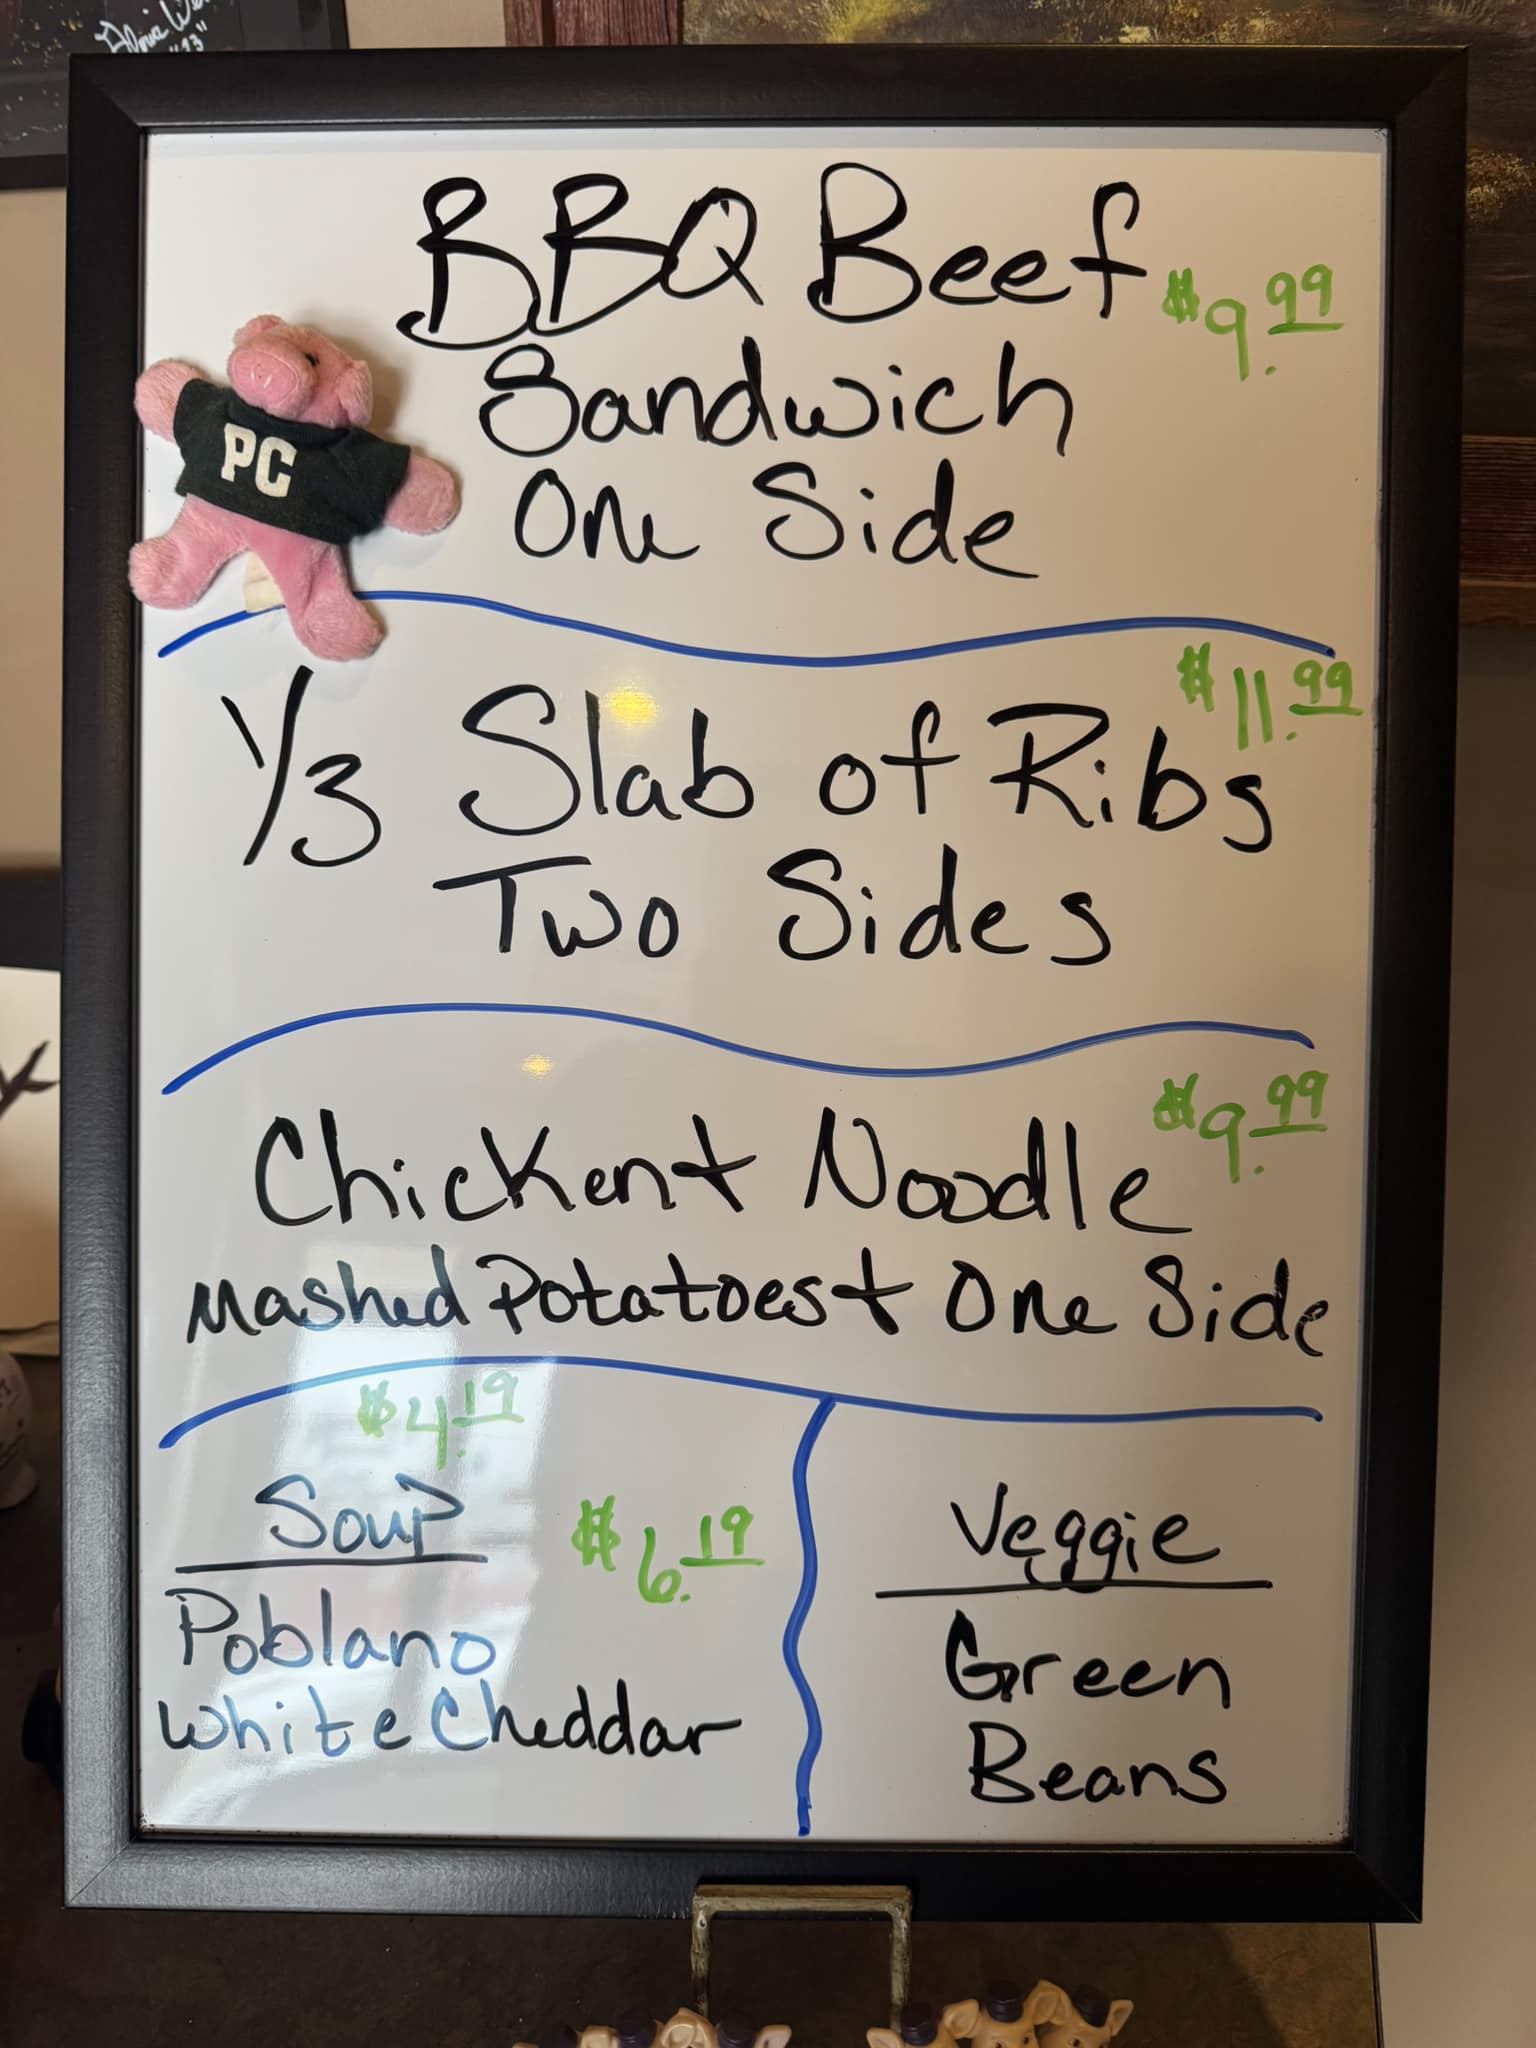 BBQ Beef $9.99
Sandwich
One Side
PC
1/3 Slab of Ribs $11.99
Two Sides
Chicken + Noodle $9.99
Mashed Potatoes + One Side
$4.19
Soup $6.19
Poblano
White Cheddar
Veggie
Green
Beans